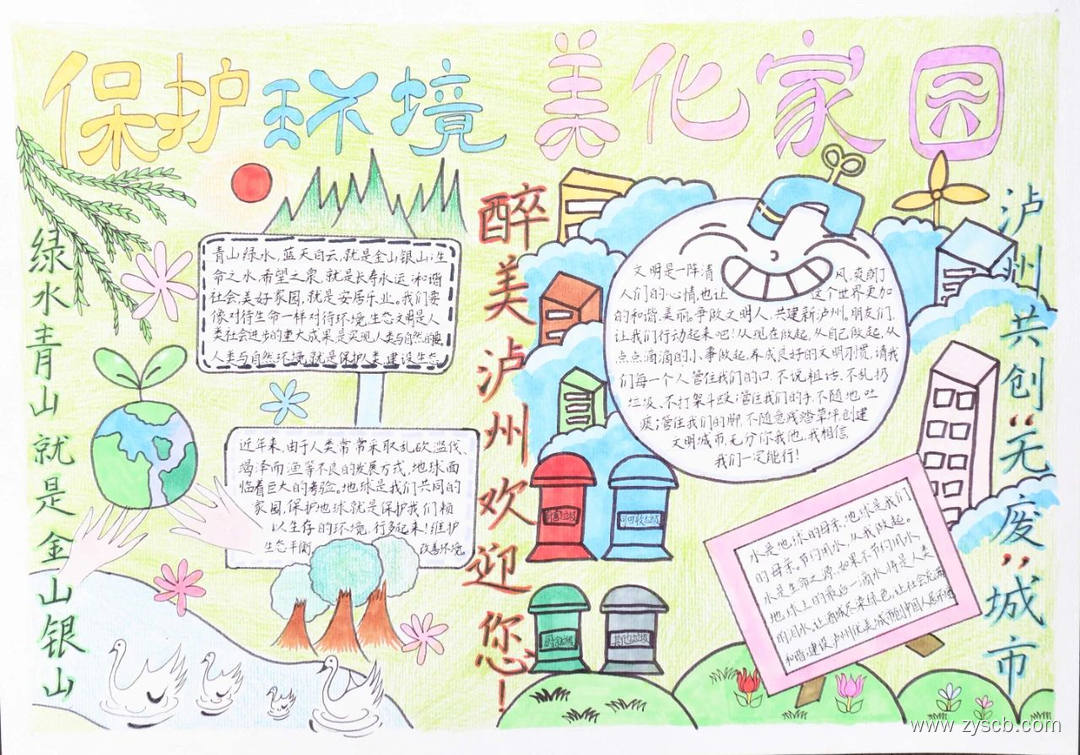 保护环境
美化家园
绿水青山就是金山银山
青山绿水,蓝天白云,就是金山银山;生
命之水,希望之泉,就是长寿水运;和谐
社会,美好家园,就是安居乐业。我们要
像对待生命一样对待环境,生态文明是人
类社会进步的重大成果,是实现人类与自然的
人类与自然环境,就是保护人类,建设生态
近年来,由于人类常常采取乱砍滥伐、
竭泽而渔等不良的发展方式,地球面
临着巨大的考验。地球是我们共同的
家园,保护地球就是保护我们相
以生存的环境,行动起来!维护
生态平衡 改善环境
醉美泸州欢迎您!
文明是一阵清 风,
人们的心情,也让 这个世界更加
的和谐、美丽。争做文明人,共建新泸州。朋友们,
让我们行动起来吧!从现在做起,从自己做起,从
点点滴滴的小事做起。养成良好的文明习惯,请我
们每一个人管住我们的口,不说粗话、不乱扔
垃圾、不打架斗殴;管住我们的手,不随地吐
痰;管住我们的脚,不随意践踏草坪,创建
文明城市,无分你我他,我相信,
我们一定能行!
可回收垃圾
水是地球的母亲,地球是我们
的母亲。节约用水,从我做起。
水是生命之源,如果不节约用水,
地球上的最后一滴水将是人类
的泪水,让
泸州共创“无废”城市
www.zyscb.com